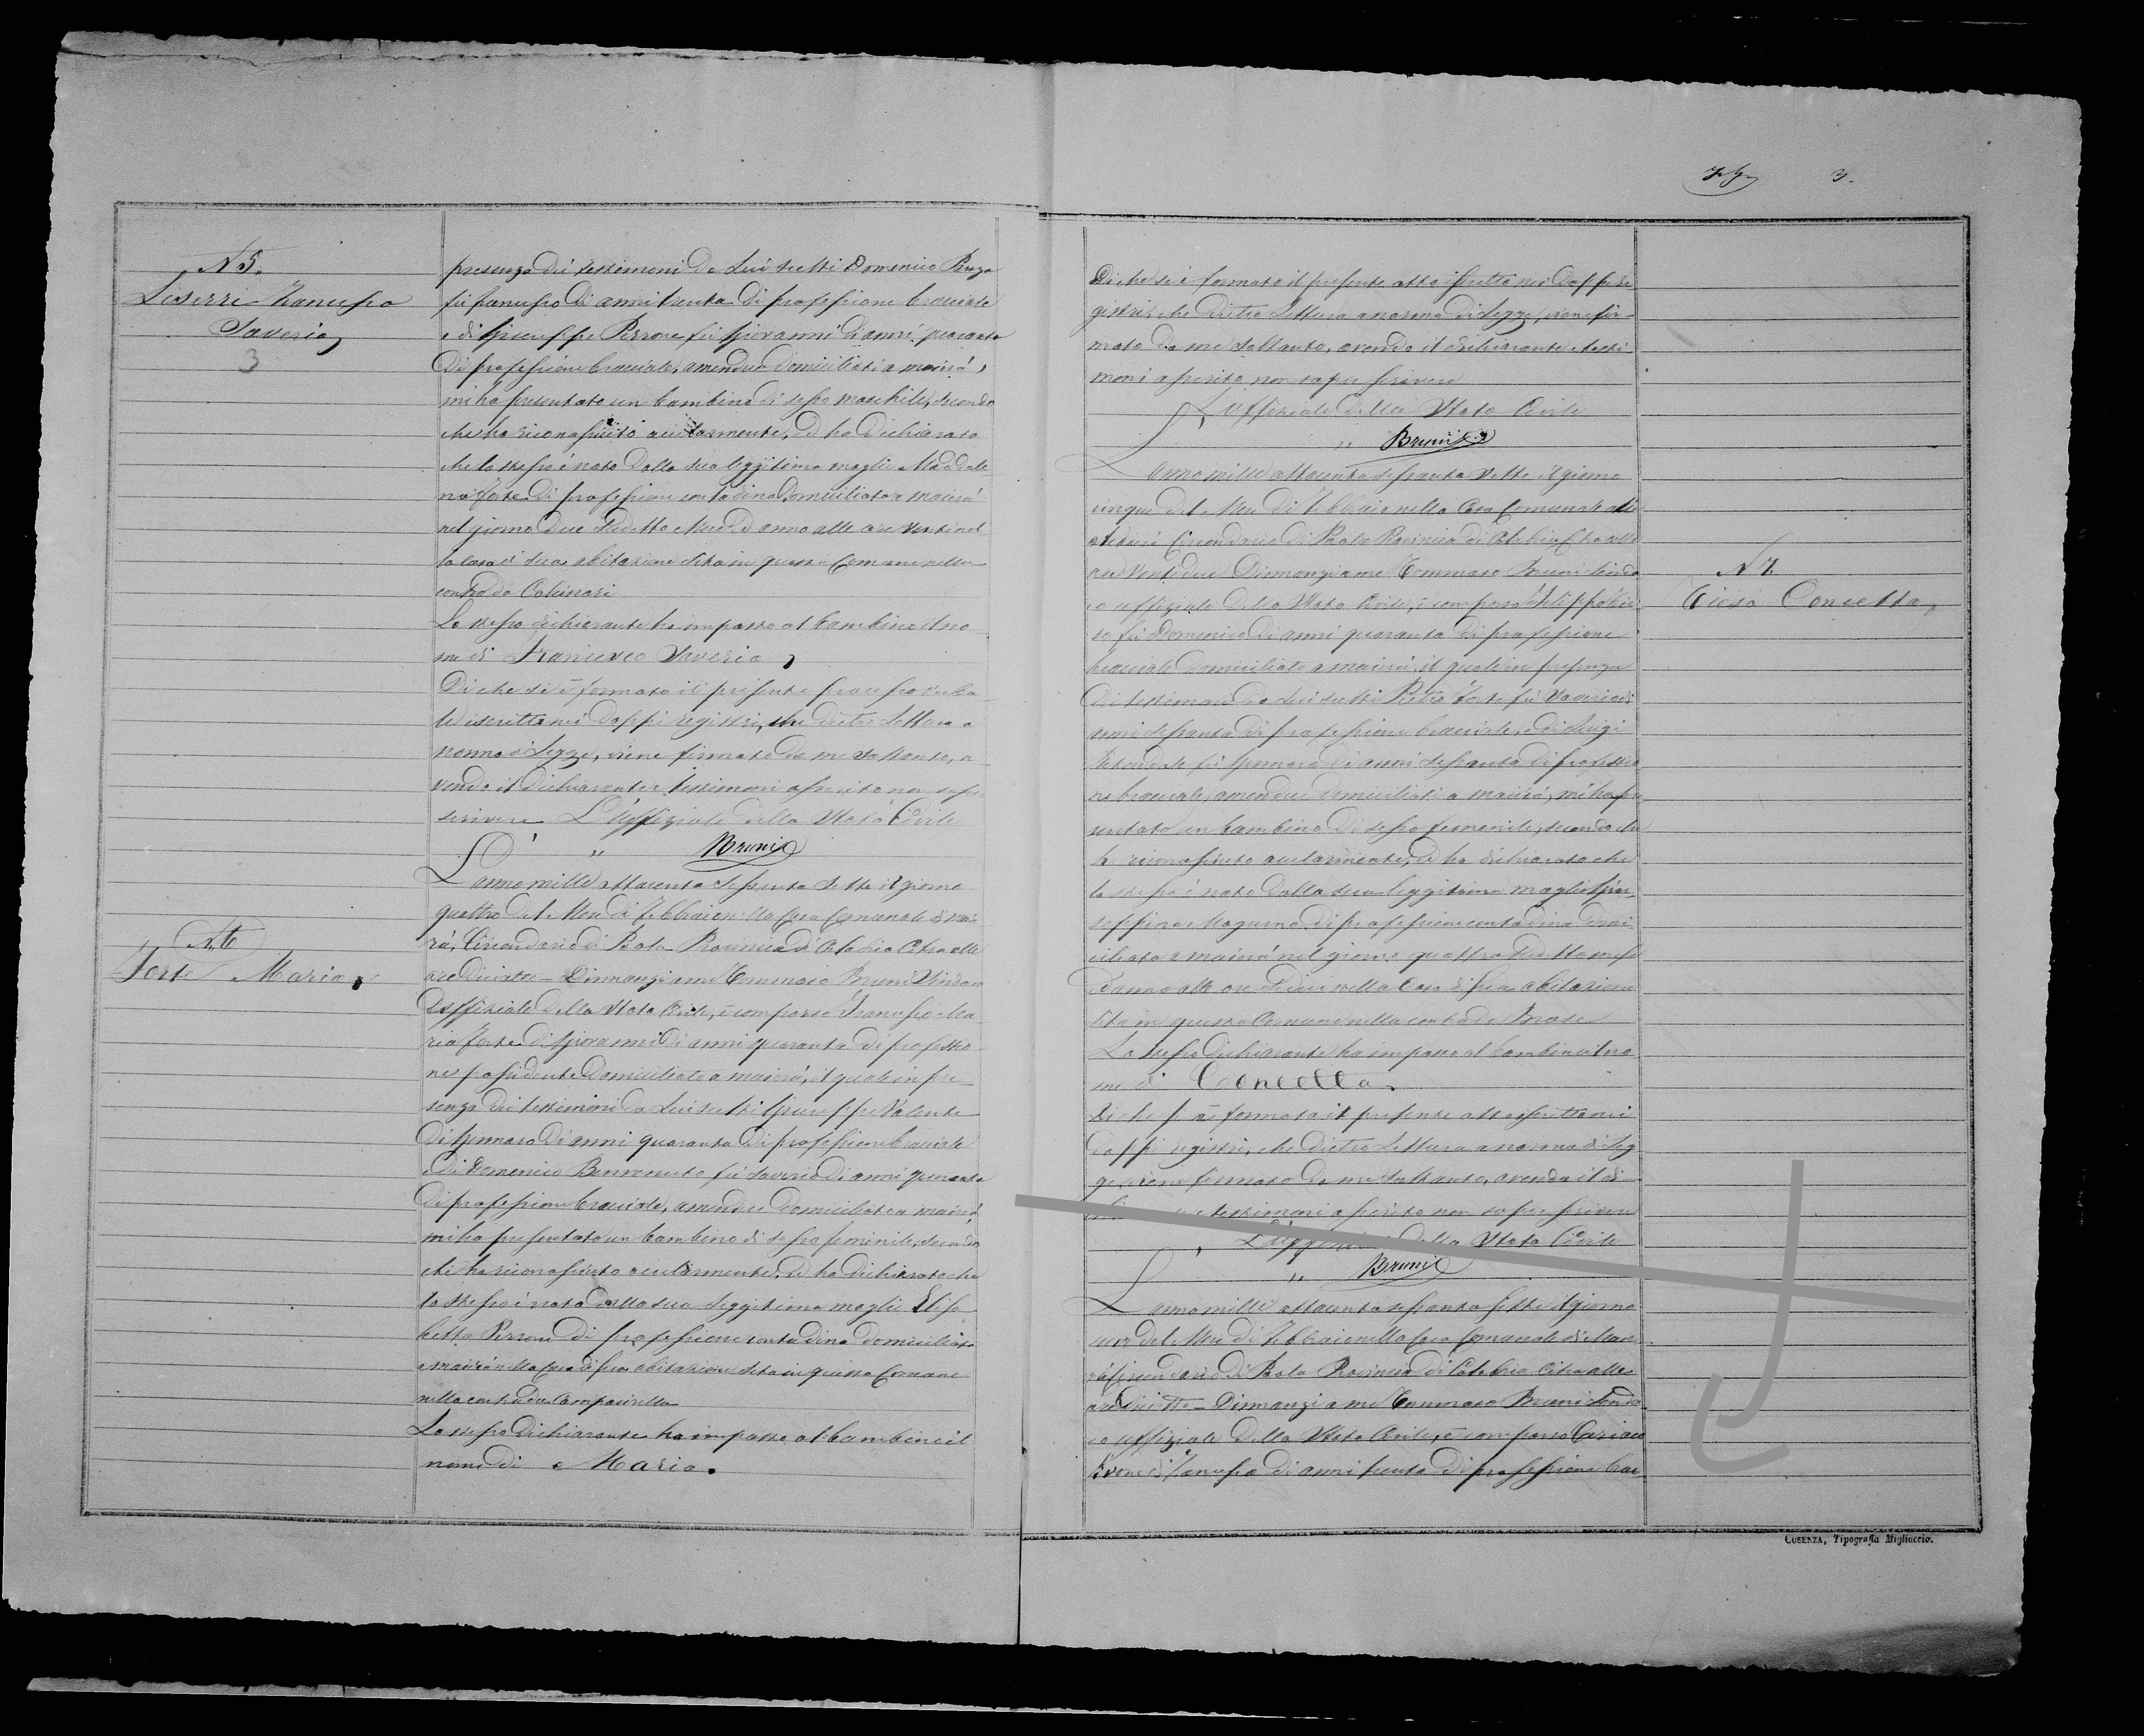 N 5.
Saverio
3
presenza dei testimoni da lui scelti Domenico
fu di anni trenta di professione bracciale
e di Giuseppe Perrone fu Giovanni di anni quaranta
di professione bracciale, amendue domiciliati a maierà,
mi ha presentato un bambino di sesso maschile, secondo
che ha riconosciuto ocularmente, ed ha dichiarato
che lo stesso è nato dalla sua leggitima moglie Maddale
na Forte di professione contadina domiciliata a maierà
nel giorno due mese ed anno alle ore venti nel
la casa di sua abitazione sita in questo Comune nella
contrada
Lo stesso dichiarante ha imposto al bambino il no
me di Francesco Saverio,
Di che si è formato il presente
ed iscritto nei doppi registri, che dietro lettura a
norma di Legge, viene firmato da me soltanto, a
vendo il dichiarante e testimoni asserito non saper
scrivere L'Uffiziale dello Stato Civile
" Bruni
L'anno mille ottocento settanta sette il giorno
quattro del Mese di Febbraio nella Casa Comunale di Maie
rà, Circondario di Paola Provincia di Calabria Citra alle
ore diciotto - Dinnanzi a me Tommaso Bruni Sindaco
Uffiziale dello Stato Civile, è comparso Francesco Ma
ria Forte di Giovanni di anni quaranta di professio
ne possidente domiciliato a maierà, il quale in pre
senza dei testimoni da lui scelti Giuseppe Valente
di Gennaro di anni quaranta di professione bracciale
e di Domenico Benvenuto fu Saverio di anni quaranta
di professione bracciale, amendue domiciliati a maierà,
mi ha presentato un bambino di sesso feminile, secondo
che ha riconosciuto ocularmente, ed ha dichiarato che
lo stesso è nato dalla sua leggitima moglie Elisa
betta Perrone di professione contadina domiciliata
a maierà nella casa di sua abitazione sita in questo Comune
nella contrada
Lo stesso dichiarante ha imposto al bambino il
nome di Maria.
N. 6
Forte Maria,
3.
Di che si è formato il presente atto iscritto nei doppi re
gistri, che dietro lettura a norma di Legge, viene fir-
mato da me soltanto, avendo il dichiarante e testi
moni asserito non saper scrivere
L'Uffiziale dello Stato Civile
" Bruni
L'anno mille ottocento settanta sette il giorno
cinque del Mese di Febbraio nella Casa Comunale di
Circondario di Paola Provincia di Calabria Citra alle
ore ventidue Dinnanzi a me Tommaso Bruni Sinda
co uffiziale dello Stato Civile, è comparso Filippo
so fu Domenico di anni quaranta di professione
bracciale domiciliato a maierà, il quale in presenza
dei testimoni da lui scelti Pietro Forte fu Saverio di
anni settanta di professione bracciale, e di Luigi
fu Gennaro di anni settanta di professio
ne bracciale, amendue domiciliati a maierà, mi ha pre
sentato un bambino di sesso femenile, secondo che
ha riconosciuto ocularmente, ed ha dichiarato che
lo stesso è nato dalla sua leggitima moglie Giu
seppina di professione contadina domi
ciliata a maierà nel giorno quattro detto mese
ed anno alle ore nella Casa di sua abitazione
sita in questo Comune nella contrada
Lo stesso dichiarante ha imposto al bambino il no
me di Concetta.
Di che si è formato il presente atto iscritto nei
doppi registri, che dietro lettura a norma di Leg
ge, viene firmato da me soltanto, avendo il di
testimoni asserito non saper scrivere
L'Uffiziale dello Stato Civile
" Bruni
L'anno mille ottocento settanta sette il giorno
nove del Mese di Febbraio nella Casa Comunale di Maie
rà Circondario di Paola Provincia di Calabria Citra alle
ore diciotto - Dinnanzi a me Tommaso Bruni Sinda
co uffiziale dello Stato Civile, è comparso
di anni trenta di professione brac
N 7.
Concetta,
COSENZA, Tipografia Migliaccio.